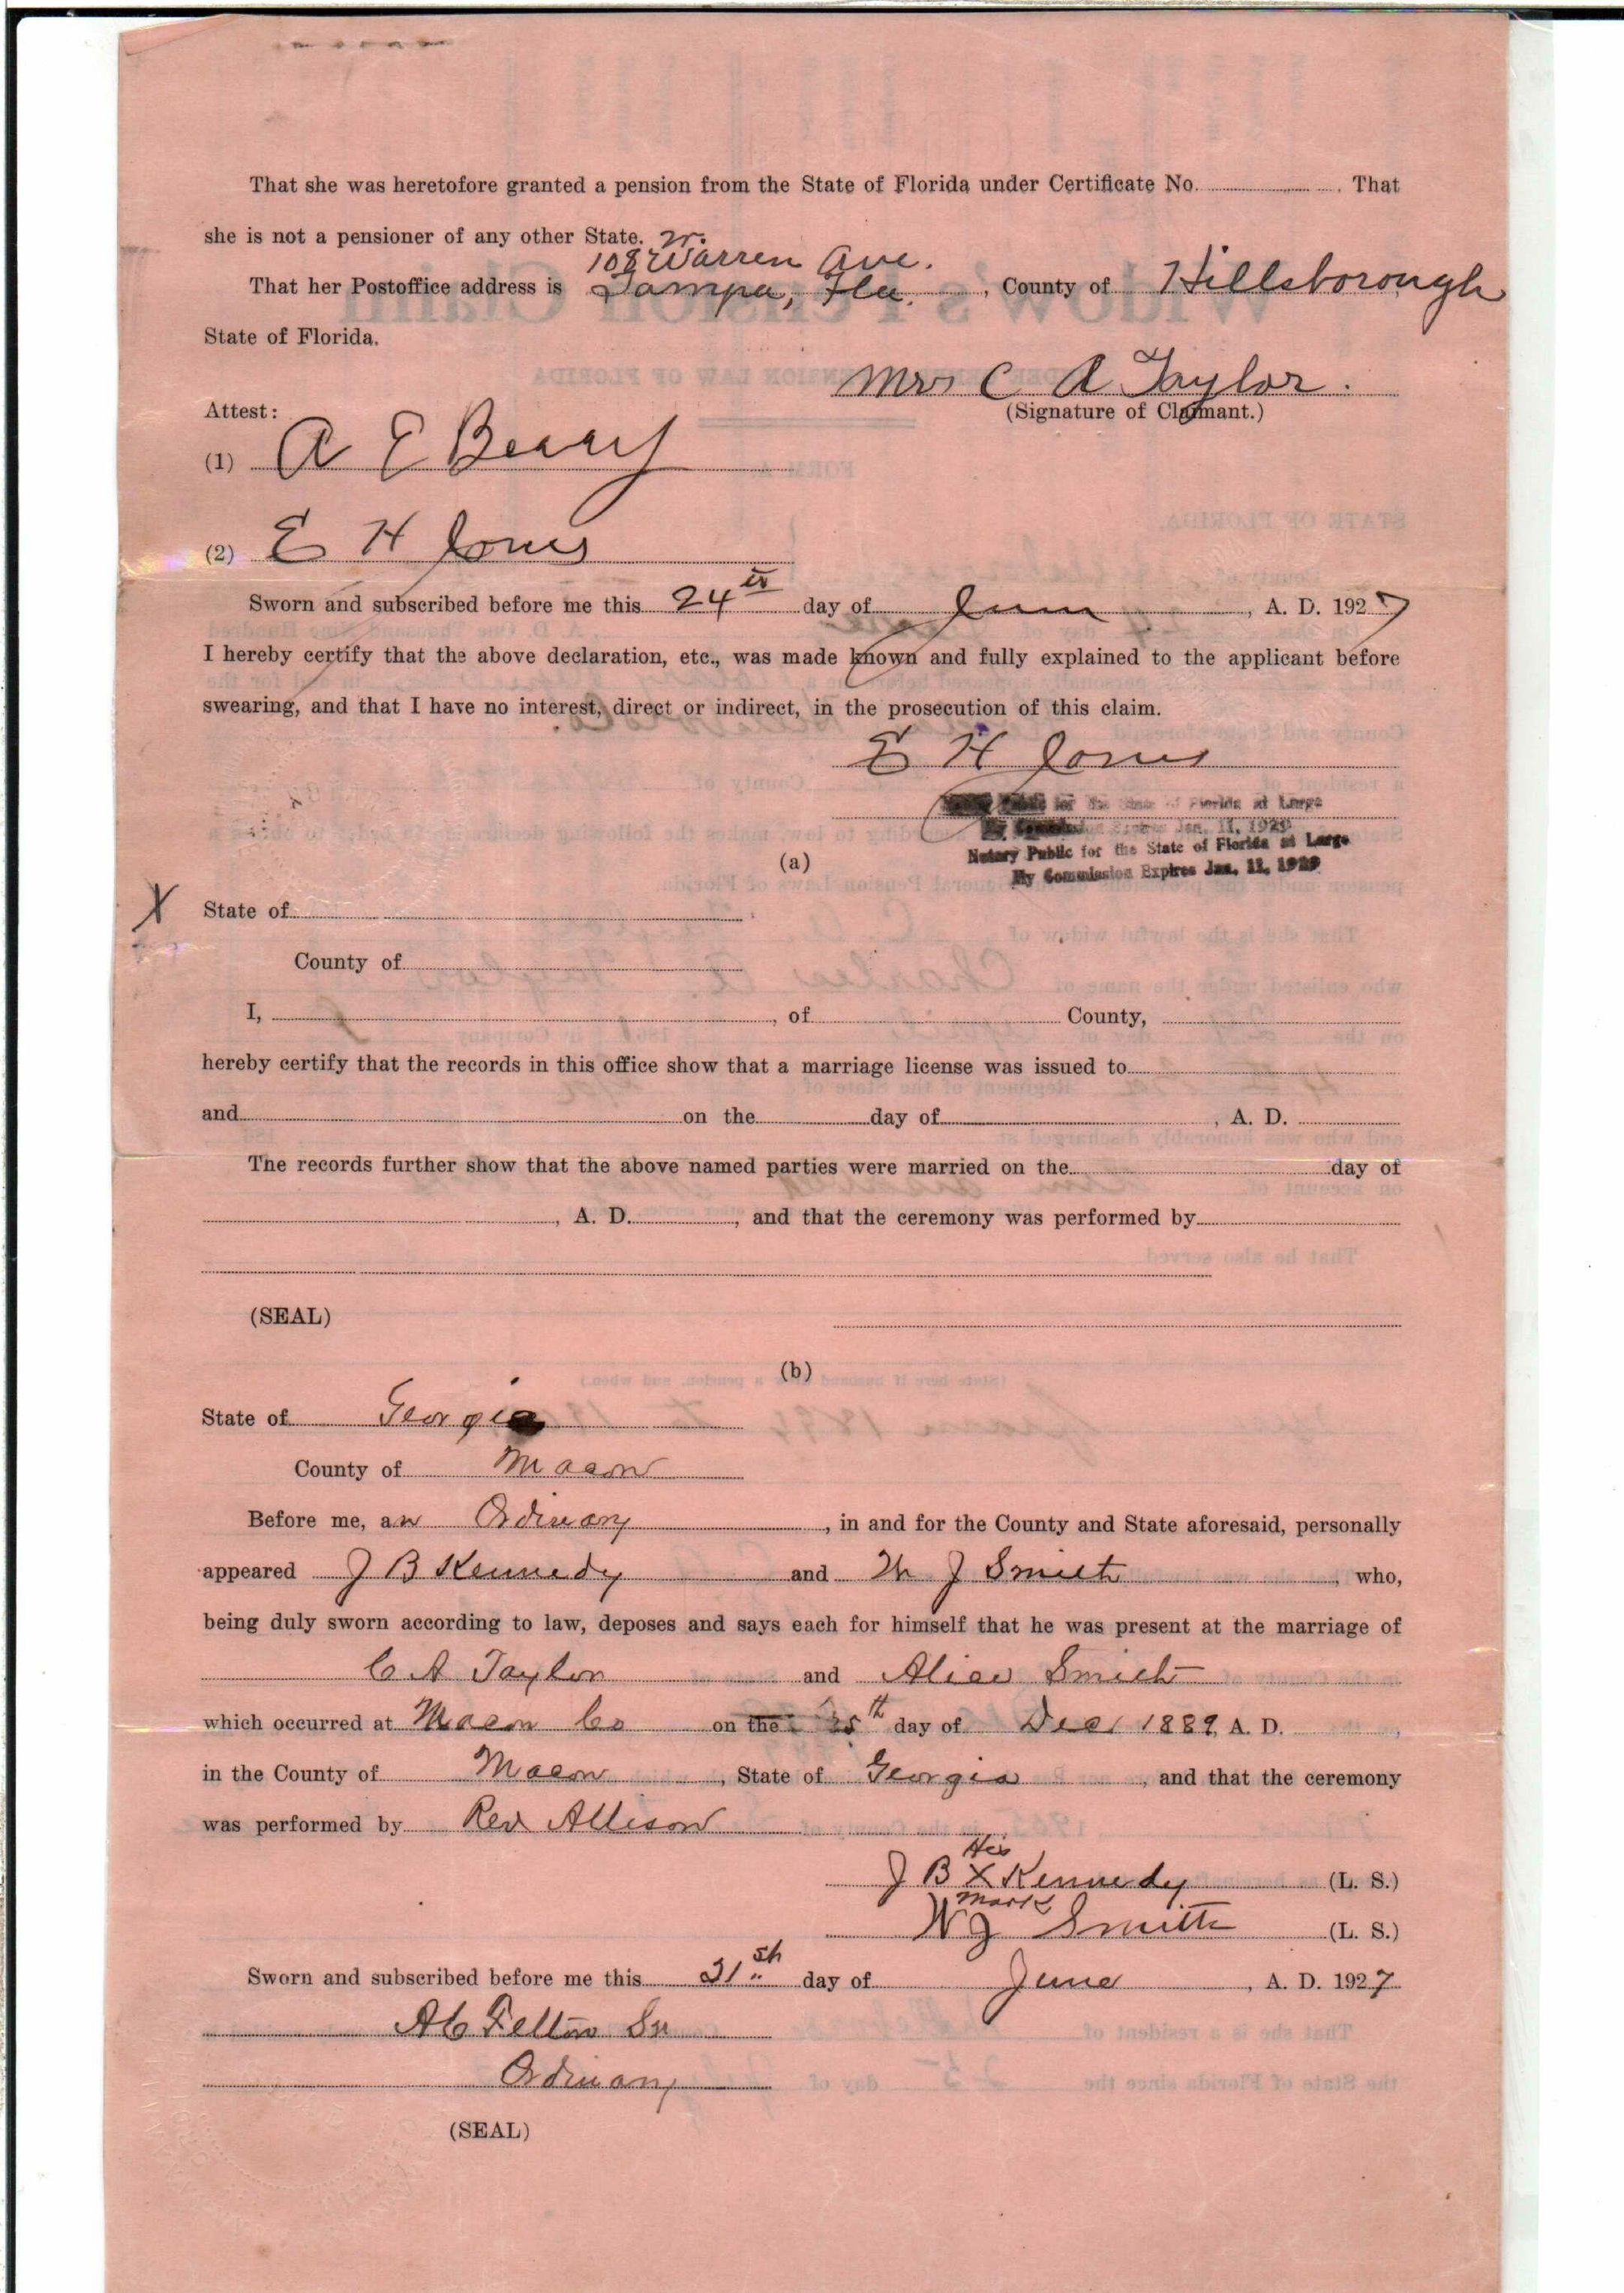 That she was heretofore granted a pension from the State of Florida under Certificate No. . That
she is not a pensioner of any other State.
108 W. Warren Ave.
That her Postoffice address is Tampa, Fla. , County of Hillsborough
State of Florida.
Mrs C A Taylor.
Attest: (Signature of Claimant.)
(1) A E Beary
(2) E H Jones
Sworn and subscribed before me this 24th day of June , A. D. 1927
I hereby certify that the above declaration, etc., was made known and fully explained to the applicant before
swearing, and that I have no interest, direct or indirect, in the prosecution of this claim.
E H Jones
Notary Public for the State of Florida at Large
My Commission Expires Jan. 11, 1929
(a)
Notary Public for the State of Florida at Large
My Commission Expires Jan. 11, 1929
X State of
County of
I, , of County,
hereby certify that the records in this office show that a marriage license was issued to
and on the day of , A. D.
The records further show that the above named parties were married on the day of
, A. D. , and that the ceremony was performed by
(SEAL)
(b)
State of Georgia
County of Macon
Before me, an Ordinary , in and for the County and State aforesaid, personally
appeared J B Kennedy and W J Smith , who,
being duly sworn according to law, deposes and says each for himself that he was present at the marriage of
C A Taylor and Alice Smith
which occurred at Macon Co on the 25th day of Dec, 1889, A. D. ,
in the County of Macon , State of Georgia , and that the ceremony
was performed by Rev Allison
His
J B X Kennedy (L. S.)
Mark
W J Smith (L. S.)
Sworn and subscribed before me this 21st day of June , A. D. 1927
A C Felton Sr
Ordinary
(SEAL)